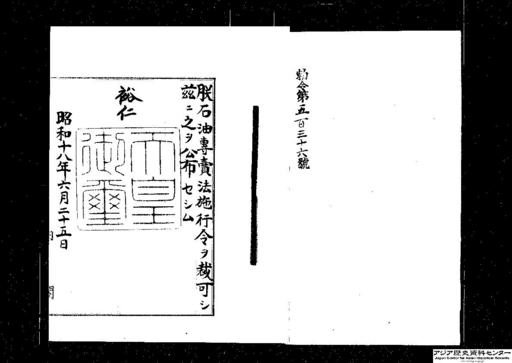 勅令第五百三十六號
朕石油專賣法施行令ヲ裁可シ
茲ニ之ヲ公布セシム
裕仁
天皇
御璽
昭和十八年六月二十五日
内 閣
アジア歴史資料センター
Japan Center for Asian Historical Records